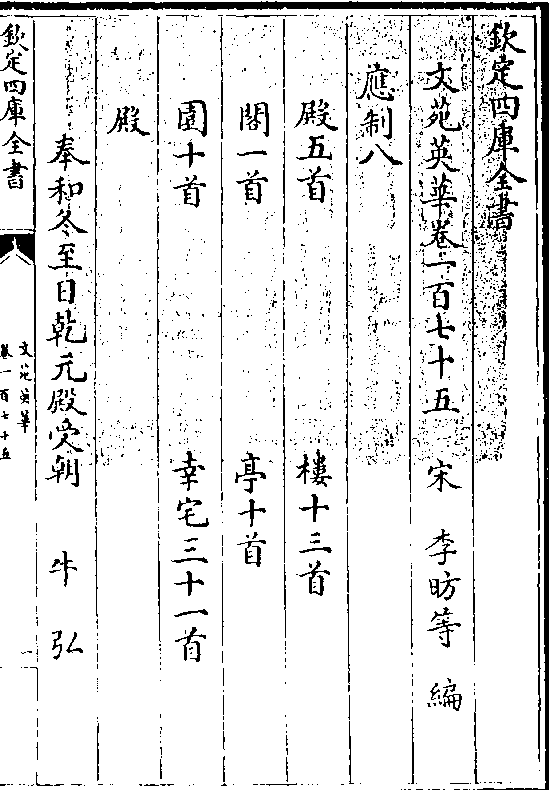 欽定四庫全書
文苑英華卷一百七十五 宋 李昉等 編
應制八
殿五首 樓十三首
閣一首 亭十首
園十首 幸宅三十一首
殿
奉和冬至日乾元殿受朝 牛弘
欽定四庫全書
文苑英華
卷一百七十五
一